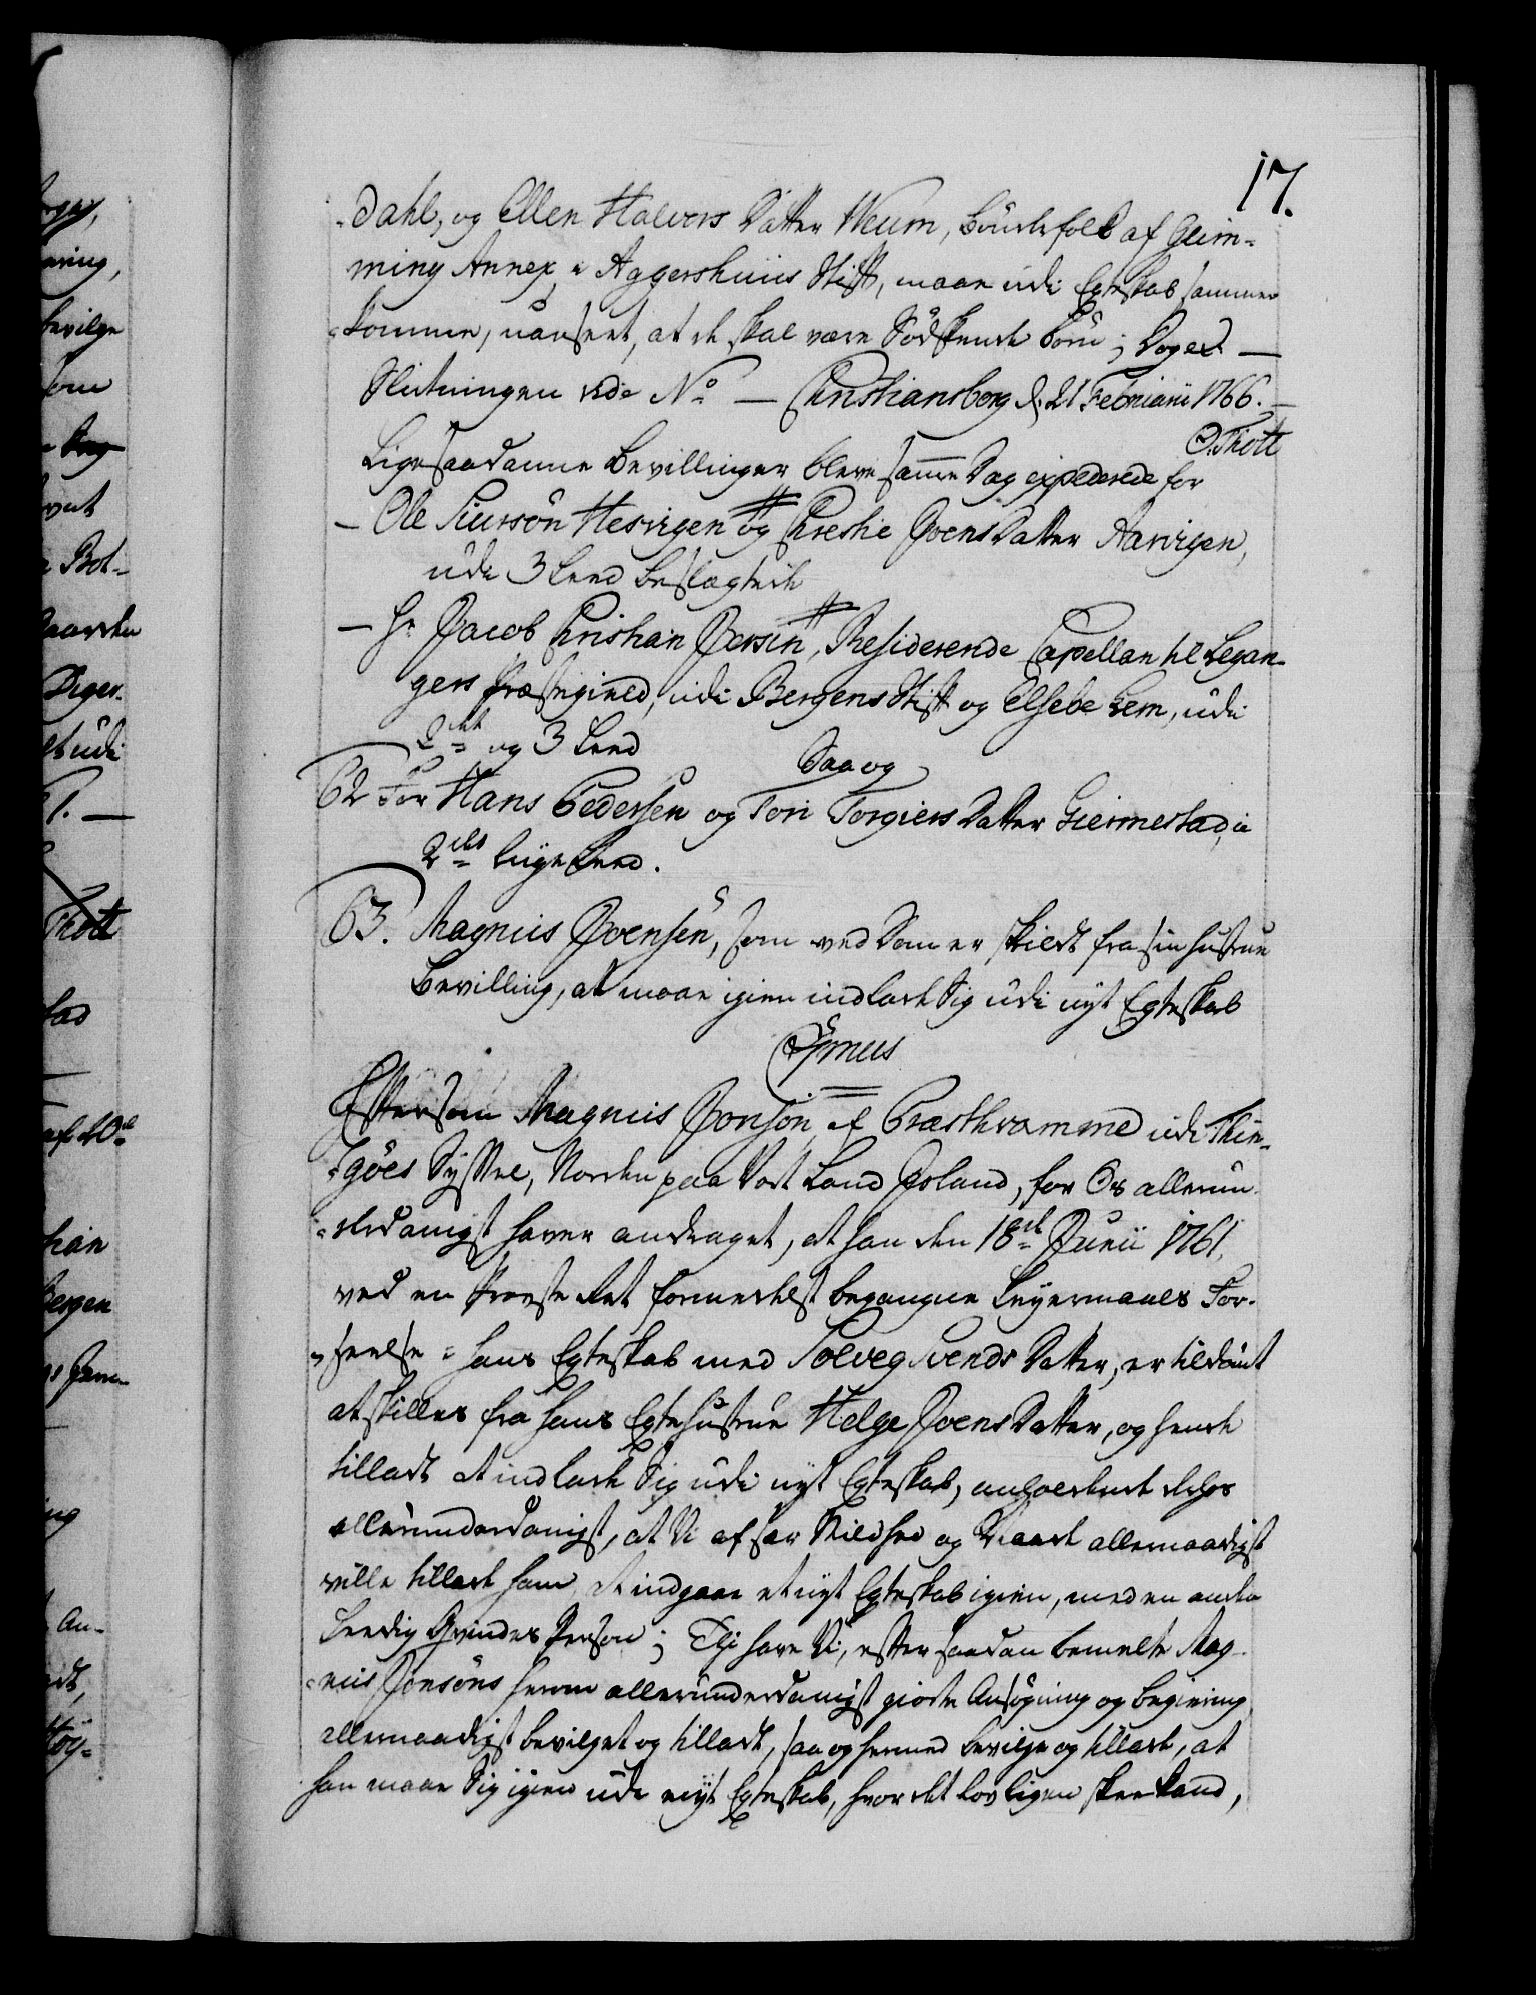 17.
-Dahl, og Ellen Halvors Datter Weum, Bøndefolk af Glim-
ming Annex i Aggershuus Stift, maae udi Egteskab sammen
-komme, uanseet, at de skal være Södskende Börn; Doges —
Slutningen vide No — Christiansborg d. 21 Februarii 1766. —
O. Thott
Ligesaadanne Bevillinger bleve samme Dag expederede for
— Ole Siursön Hesvigen og Chrestie Joens Datter Aarvigen,
udi 3 Leed beslægtede
— Hr Jacob Christian Jersin, Residerende Capellan til Legan-
gers Præstegield, udi Bergens Stift og Elsebe Lem, udi
2det og 3 Leed
Saa og
62 For Hans Pedersen og Tori Torgiers Datter Giermestad, i
2det liige Leed.
63. Magnus Joensen, som ved Dom er skildt fra sin Hustrue
Bevilling, at maae igien indlade Sig udi nyt Egteskab
Grmus
Eftersom Magnus Jonsön af Præsthvamme udi Thin-
-göes Syssel, Norden paa Vort Land Island, for Os allerun-
-derdanigst haver andraget, at han den 18de Junii 1761,
ved en Provste Ret formedelst begangne Leyermaals For-
-seelse i hans Egteskab med Solveg Svends Datter, er tildömt
at skilles fra hans Egtehustrue Helge Joens Datter, og hende
tilladt at indlade Sig udi nyt Egteskab, anholdende
allerunderdanigst, at Vi af sær Mildhed og Naade allernaadigst
ville tillade ham, at indgaae et nyt Egteskab igien, med en anden
Leedig Qvindes Person; Thi have Vi, efter saadan bemelte Mag-
-nus Jonsöns herom allerunderdanigst giorte Ansögning og begiering
allernaadigst bevilget og tilladt, saa og hermed bevilge og tillade, at
han maae Sig igien udi nyt Egteskab, hvor det lovligen skee kand,